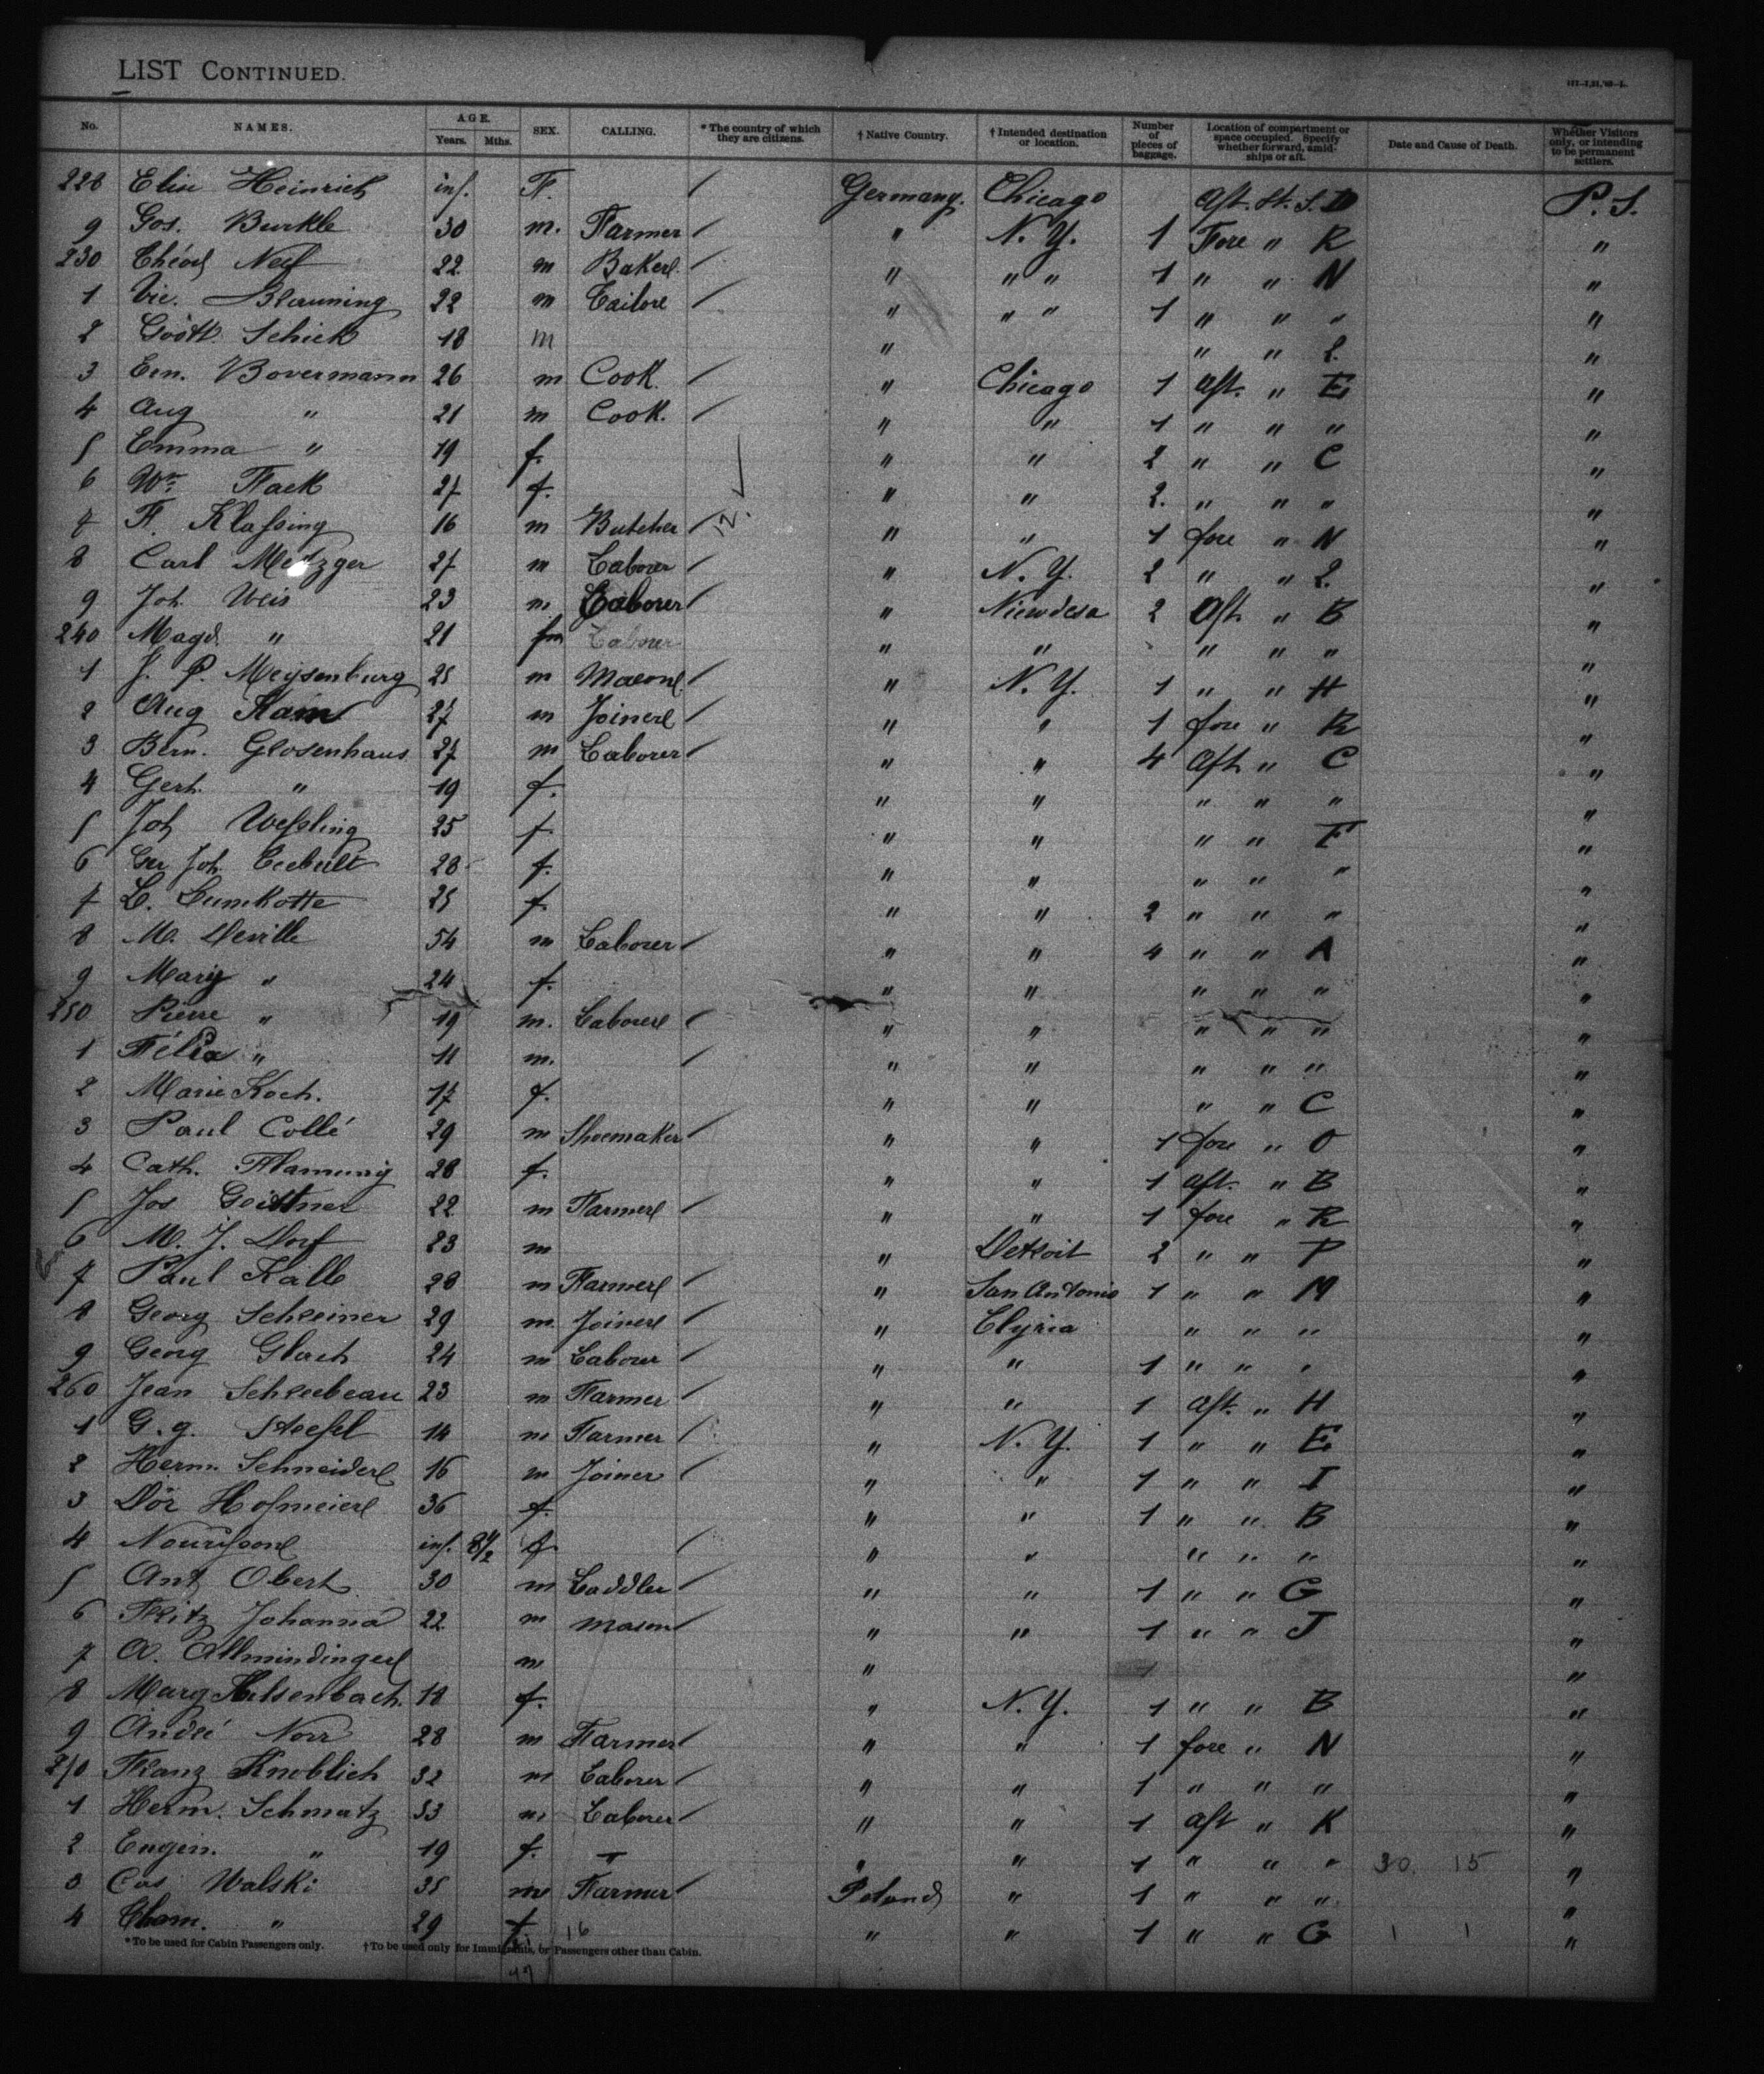 LIST CONTINUED.
No. NAMES. AGE. Years. Mths. SEX. CALLING. * The country of which they are citizens. † Native Country. † Intended destination or location. Number of pieces of baggage. Location of compartment or space occupied. Specify whether forward, amidships or aft. Date and Cause of Death. Whether Visitors only, or intending to be permanent settlers.
228 Elise Heinrich inf. F. / Germany. Chicago Aft. St. S. D P. S.
9 Gos. Burkle 30 m. Farmer / " N. Y. 1 Fore " R "
230 Théod Neef 22 m Baker / " " " 1 " " N "
1 Vic. Brauning 22 m Tailor / " " " 1 " " " "
2 Gott. Schick 18 m " " " L "
3 Ern. Bovermann 26 m Cook. / " Chicago 1 aft. " E "
4 Aug " 21 m Cook. / " " 1 " " " "
5 Emma " 19 f. " " 2 " " C "
6 Wm. Fack 27 f. " " 2. " " " "
7 F. Klassing 16 m Butcher / 12. " " 1 fore " N "
8 Carl Metzger 27 m Laborer / " N. Y. 2 " " L "
9 Joh. Weis 23 m Laborer / " Niewdesa 2 Aft " B "
240 Magd. " 21 f Laborer " " " " " "
1 J. P. Meysenburg 25 m Mason / " N. Y. 1 " " H "
2 Aug Kam 27 m Joiner / " " 1 fore " R "
3 Bern. Grosenhaus 27 m Laborer / " " 4 Aft " C "
4 Gerh. " 19 f. " " " " " "
5 Joh Wessling 25 f. " " " " F "
6 Ger Joh. 28 f. " " " " " "
7 L. Lumkotte 25 f. " " 2 " " " "
8 M. Deville 54 m Laborer / " " 4 " " A "
9 Mary " 24 f. " " " " " "
250 Pierre " 19 m. Laborer / " " " " " "
1 Félix " 11 m. / " " " " " "
2 Marie Koch. 17 f. " " " " C "
3 Paul Collé 29 m Shoemaker / " " 1 fore " O "
4 Cath. Flamung 28 f. " " 1 aft. " B "
5 Jos Geittner 22 m Farmer / " " 1 fore " R "
6 M. J. Dorf 23 m " Detroit 2 " " P "
7 Paul Kalb 28 m Farmer / " San Antonio 1 " " M "
8 Georg Schreiner 29 m. Joiner / " Elyria " " " "
9 Georg Glach 24 m Laborer / " " 1 " " " "
260 Jean Schrebeau 23 m Farmer / " " 1 aft. " H "
1 G. g. Stoessel 14 m Farmer / " N. Y. 1 " " E "
2 Herm. Schneider 16 m Joiner / " " 1 " " I "
3 Dor Hofmeier 36 f. " " 1 " " B "
4 Nourisson inf. f / " " " " " "
5 Ant Obert 30 m Saddler / " " 1 " " G "
6 Fritz Johanna 22 m Mason / " " 1 " " J "
7 A. Allmindinger m " "
8 Marg Hilsenbach. 18 f. " N. Y. 1 " " B "
9 André Norr 28 m Farmer / " " 1 fore " N "
270 Franz Knoblich 32 m Laborer / " " 1 " " " "
1 Herm. Schmatz 33 m Laborer / " " 1 aft " K "
2 Eugen. " 19 f. " " 1 " " " 30. 15 "
3 Cas Walski 35 m Farmer / Poland " 1 " " " "
4 Cham. " 29 f. 16 " " 1 " " G 1 1 "
*To be used for Cabin Passengers only. †To be used only for Immigrants, or Passengers other than Cabin.